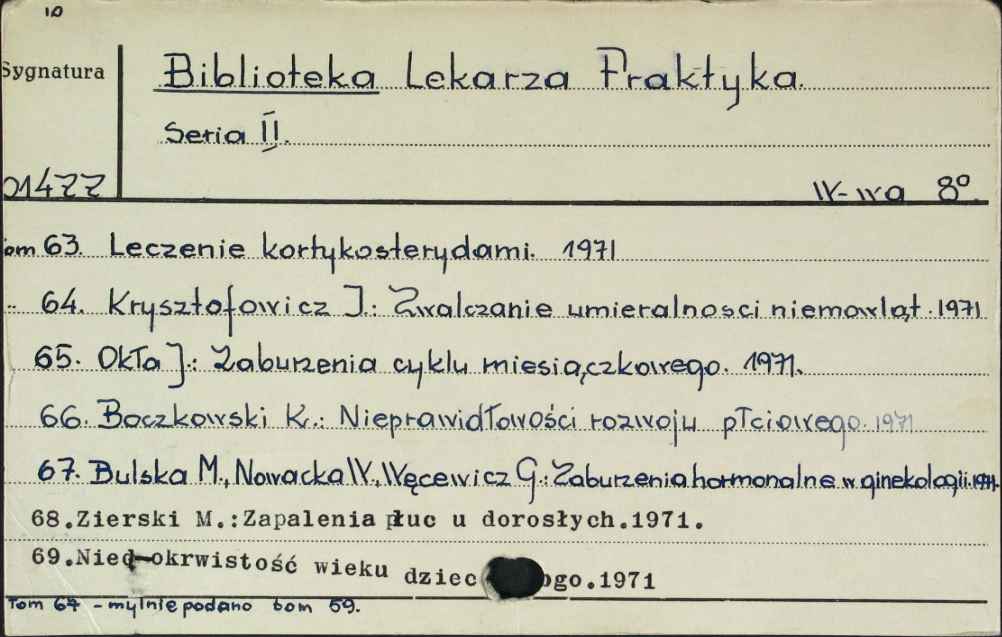 10
Sygnatura
Biblioteka Lekarza Praktyka.
Seria II.
01422
W-wa 8°
Tom 63. Leczenie kortykosterydami. 1971
" 64. Krysztofowicz J.: Zwalczanie umieralnosci niemowląt. 1971
65. Okła J.: Zaburzenia cyklu miesiączkowego. 1971.
66. Boczkowski K.: Nieprawidłowości rozwoju płciowego. 1971
67. Bulska M., Nowacka W., Węcewicz G.: Zaburzenia hormonalne w ginekologii. 1971.
68.Zierski M.:Zapalenia płuc u dorosłych.1971.
69.Niedokrwistość wieku dziec ogo.1971
Tom 67 - mylnie podano tom 59.